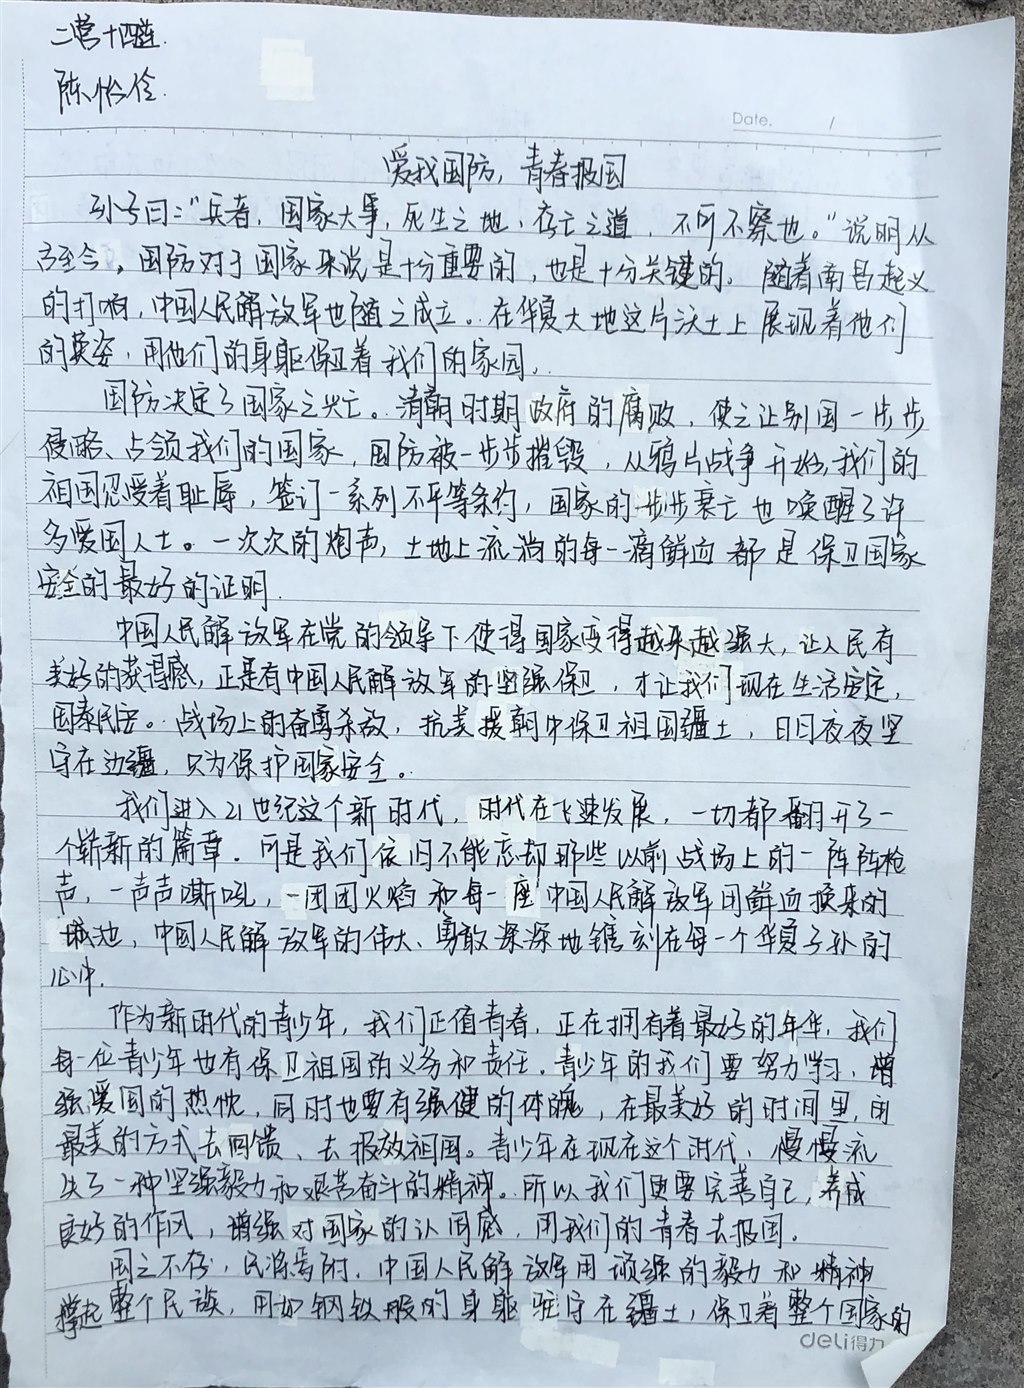 二营十四连.
陈怡伶.
Date. /
爱我国防，青春报国
孙子曰："兵者，国家大事，死生之地，存亡之道，不可不察也。"说明从
古至今，国防对于国家来说是十分重要的，也是十分关键的。随着南昌起义
的打响，中国人民解放军也随之成立。在华夏大地这片沃土上展现着他们
的英姿，用他们的身躯保卫着我们的家园。
国防决定了国家之兴亡。清朝时期政府的腐败，使之让别国一步步
侵略、占领我们的国家，国防被一步步摧毁，从鸦片战争开始，我们的
祖国忍受着耻辱，签订一系列不平等条约，国家的一步步衰亡也唤醒了许
多爱国人士。一次次的炮声，土地上流淌的每一滴鲜血都是保卫国家
安全的最好的证明.
中国人民解放军在党的领导下使得国家变得越来越强大，让人民有
美好的获得感，正是有中国人民解放军的坚强保卫，才让我们现在生活安定，
国泰民安。战场上的奋勇杀敌，抗美援朝中保卫祖国疆土，日日夜夜坚
守在边疆，只为保护国家安全。
我们进入21世纪这个新时代，时代在飞速发展，一切都翻开了一
个崭新的篇章。可是我们依旧不能忘却那些以前战场上的一阵阵枪
声，一声声嘶吼，一团团火焰和每一座中国人民解放军用鲜血换来的
城池，中国人民解放军的伟大、勇敢深深地镌刻在每一个华夏子孙的
心中.
作为新时代的青少年，我们正值青春，正在拥有着最好的年华，我们
每一位青少年也有保卫祖国的义务和责任。青少年的我们要努力学习，增
强爱国的热忱，同时也要有强健的体魄，在最美好的时间里，用
最美的方式去回馈、去报效祖国。青少年在现在这个时代，慢慢流
失了一种坚强毅力和艰苦奋斗的精神。所以我们更要完善自己，养成
良好的作风，增强对国家的认同感，用我们的青春去报国。
国之不存，民将焉附，中国人民解放军用顽强的毅力和精神
撑起整个民族，用如钢铁般的身躯驻守在疆土，保卫着整个国家的
deli得力